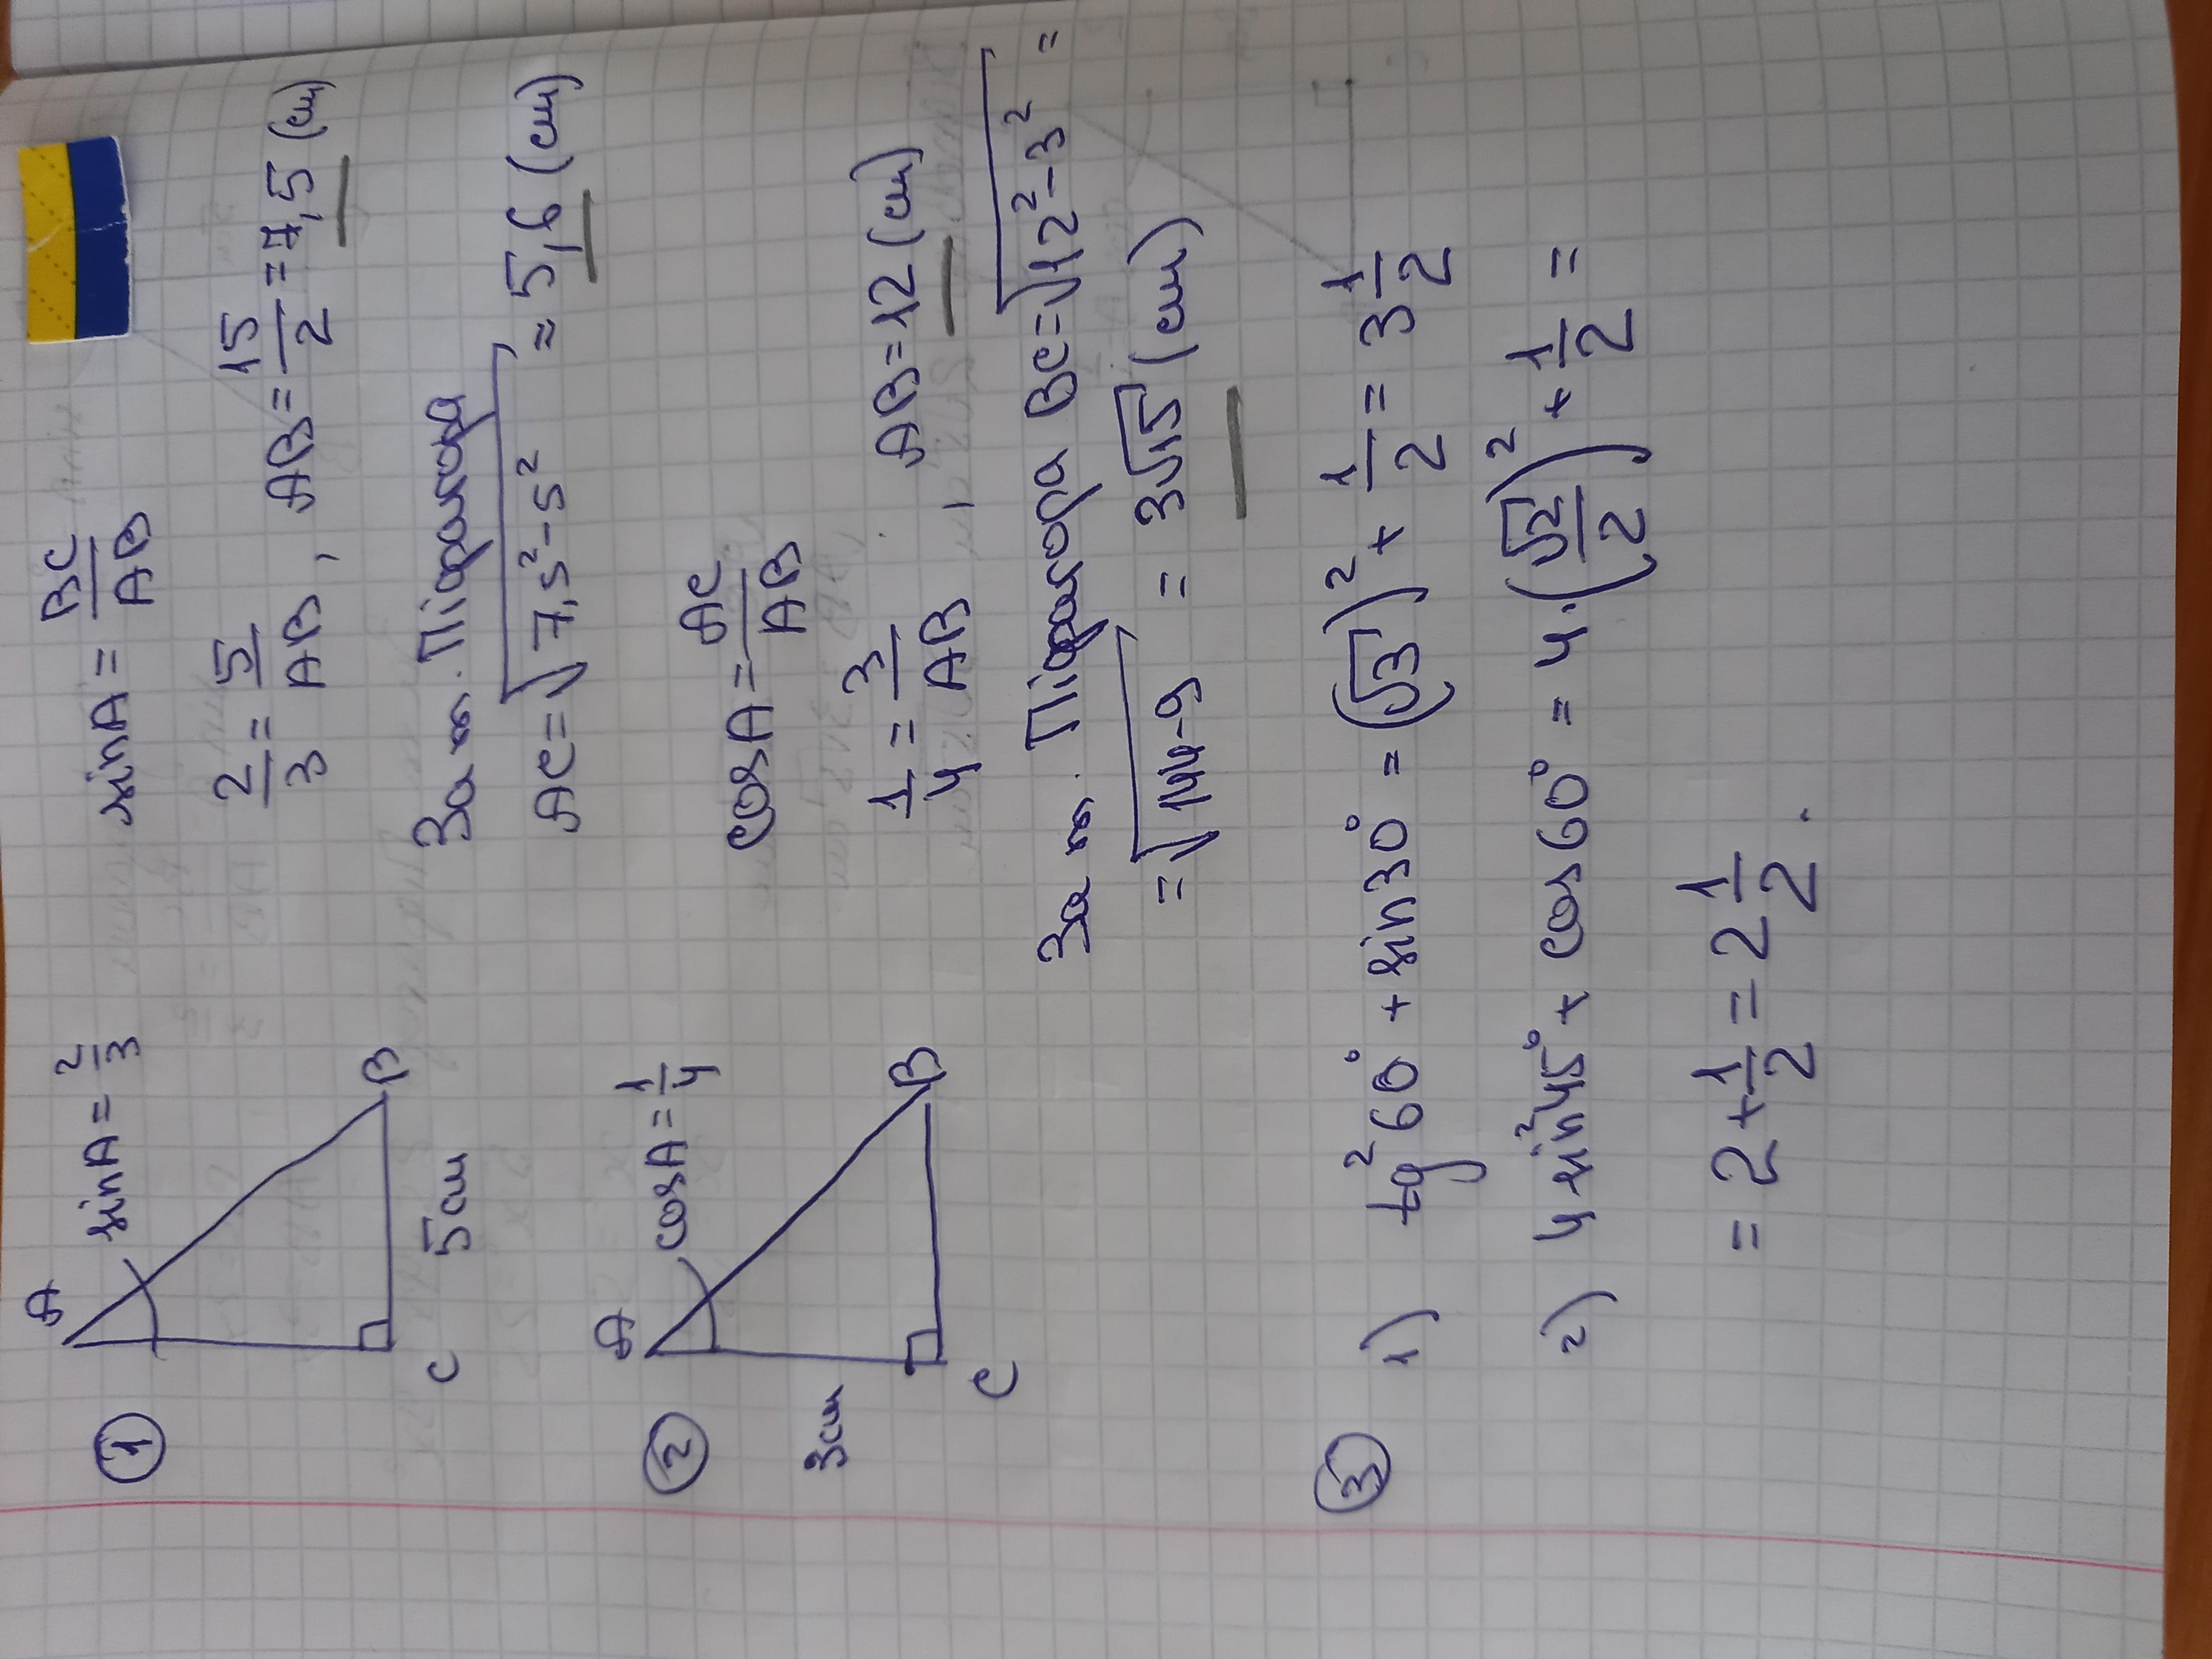 ① A sinA = 2/3 sinA = BC/AB
2/3 = 5/AB , AB = 15/2 = 7,5 (см)
C 5см B
За т. Піфагора
AC = √(7,5² - 5²) = 5,6 (см)
② A cosA = 1/4 cosA = AC/AB
3см 1/4 = 3/AB , AB = 12 (см)
C B
За т. Піфагора BC = √(12² - 3²) =
= √(144 - 9) = 3√15 (см)
③ 1) tg²60° + sin30° = (√3)² + 1/2 = 3 1/2
2) 4 sin²45° + cos60° = 4·(√2/2)² + 1/2 =
= 2 + 1/2 = 2 1/2 .